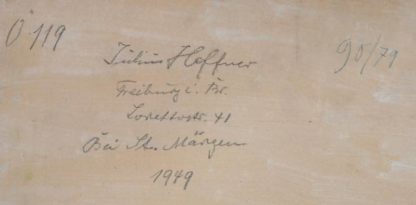 Ö 119
90/79
Julius Heffner
Freiburg i. Br.
Lorettostr. 41
Bei St. Märgen
1949